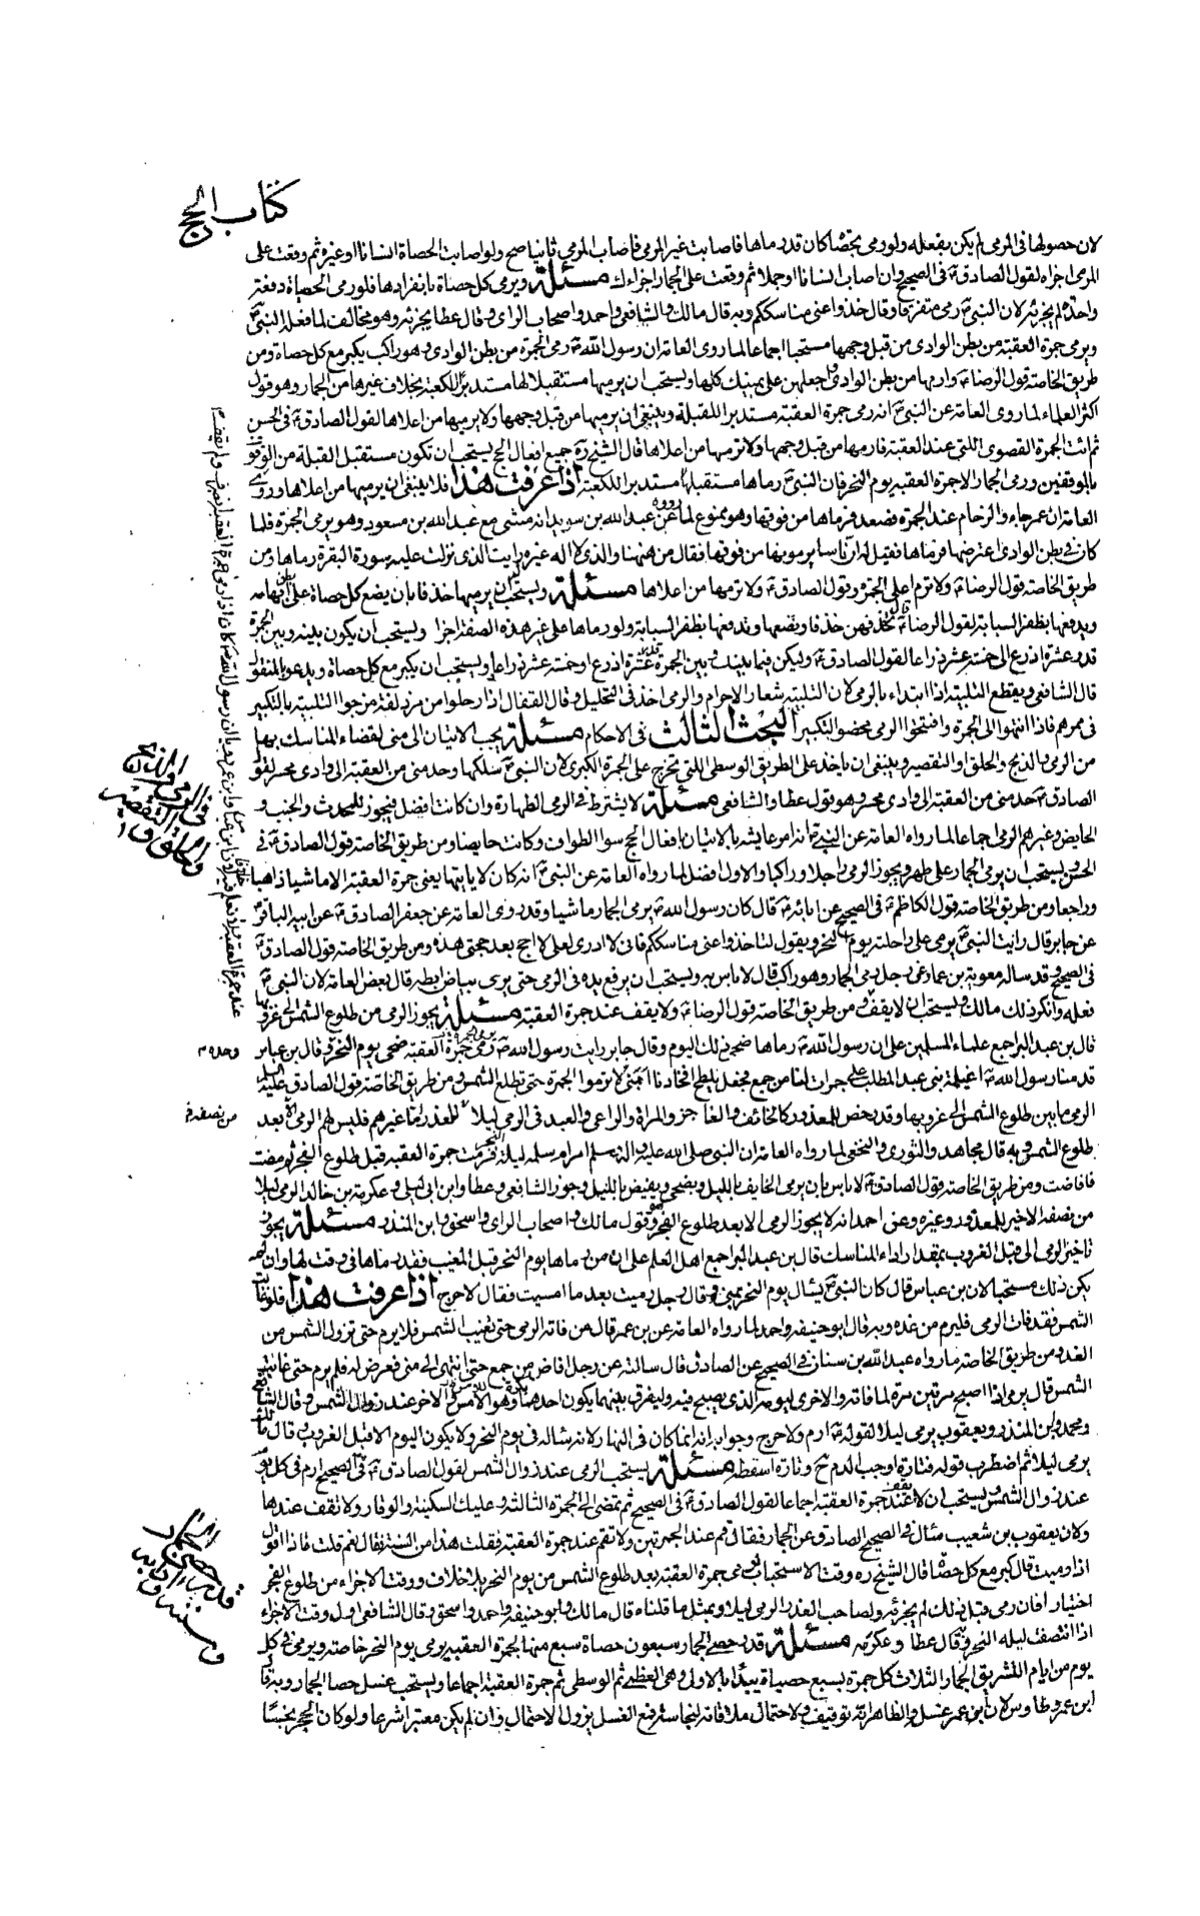 كتاب الحج
لان حصولها في المرمى لم يكن بفعله ولو رمى بحصاة كان قد رماها فاصابت غير المرمى فاصاب المرمى ثانيا صح ولو اصابت الحصاة انسانا او غيره ثم وقعت على
المرمى اجزاه لقول الصادق ع في الصحيح وان اصاب انسانا او جملا ثم وقعت على الجمار اجزاءك مسئلة ويرمى كل حصاة بانفرادها فلو رمى الحصياة دفعة
واحدة لم يجزئه لان النبي ص رمى متفرقا وقال خذوا عني مناسككم وبه قال مالك والشافعي واحمد واصحاب الراى وقال عطا يجزئه وهو مخالف لما فعله النبي ص
ويرمى جمرة العقبة من بطن الوادى من قبل وجهها مستحبا اجماعا لما روى العامة ان رسول الله ص رمى الجمرة من بطن الوادى وهو راكب يكبر مع كل حصاة ومن
طريق الخاصة قول الرضا ع وارمها من بطن الوادى واجعلهن على يمينك كلها ويستحب ان يرميها مستقبلا لها مستدبرا للكعبة بخلاف غيرها من الجمار وهو قول
اكثر العلماء لما روى العامة عن النبي ص انه رمى جمرة العقبة مستدبر القبلة وينبغي ان يرميها من قبل وجهها ولا يرميها من اعلاها لقول الصادق ع في الحسن
ثم ائت الجمرة القصوى التي عند العقبة فارمها من قبل وجهها ولا ترمها من اعلاها قال الشيخ ره جميع افعال الحج يستحب ان تكون مستقبل القبلة من الوقوف
بالموقفين ورمى الجمار الا جمرة العقبة يوم النحر فان النبي ص رماها مستقبلها مستدبرا للكعبة اذا عرفت هذا فلا ينبغي ان يرميها من اعلاها وروى
العامة ان عمر جاء والزحام عند الجمرة فصعد فرماها من فوقها وهو ممنوع لما رووه عن عبد الله بن سويد انه مشى مع عبد الله بن مسعود وهو يرمى الجمرة فلما
كان في بطن الوادى اعترضها فرماها فقيل له ان ناسا يرمونها من فوقها فقال من ههنا والذي لا اله غيره رايت الذي نزلت عليه سورة البقرة رماها ومن
طريق الخاصة قول الرضا ع ولا ترم اعلى الجمرة وقول الصادق ع ولا ترمها من اعلاها مسئلة ويستحب ان يرميها خذفا بان يضع كل حصاة على بطن ابهامه
ويدفعها بظفر السبابة لقول الرضا ع قال تخذفهن خذفا وتضعها وتدفعها بظفر السبابة ولو رماها على غير هذه الصفة اجزا ويستحب ان يكون بينه وبين الجمرة
قدر عشرة اذرع الى خمسة عشر ذراعا لقول الصادق ع وليكن فيما بينك وبين الجمرة قدر عشرة اذرع او خمسة عشر ذراعا ويستحب ان يكبر مع كل حصاة ويدعو بالمنقول
قال الشافعي ويقطع التلبية اذا ابتداء بالرمى لان التلبية شعار الاحرام والرمى اخذ في التحليل وقال القفال اذا رحلوا من مزدلفة مزجوا التلبية بالتكبير
في ممرهم فاذا انتهوا الى الجمرة وافتتحوا الرمى محضوا التكبير البحث الثالث في الاحكام مسئلة يجب الاتيان الى منى لقضاء المناسك بها
من الرمى والذبح والحلق او التقصير وينبغي ان ياخذ على الطريق الوسطى التي تخرج على الجمرة الكبرى لان النبي ص سلكها وحد منى من العقبة الى وادى محسر لقول
الصادق ع حد منى من العقبة الى وادى محسر وهو قول عطا والشافعي مسئلة لا يشترط في الرمى الطهارة وان كانت افضل فيجوز للمحدث والجنب و
الحايض وغيرهم الرمى اجماعا لما رواه العامة عن النبي ص انه امر عايشه بالاتيان بافعال الحج سوا الطواف وكانت حايضا ومن طريق الخاصة قول الصادق ع في
الحسن ويستحب ان يرمى الجمار على طهر ويجوز الرمى راجلا وراكبا والاول افضل لما رواه العامة عن النبي ص انه كان لا ياتيها يعني جمرة العقبة الا ماشيا ذاهبا
وراجعا ومن طريق الخاصة قول الكاظم ع في الصحيح عن ابائه ع قال كان رسول الله ص يرمى الجمار ماشيا وقد روى العامة عن جعفر الصادق ع عن ابيه الباقر ع
عن جابر قال رايت النبي ص يرمى على راحلته يوم النحر ويقول لتاخذوا عني مناسككم فاني لا ادرى لعلى لا احج بعد حجتى هذه ومن طريق الخاصة قول الصادق ع
في الصحيح وقد ساله معوية بن عمار عن رجل رمى الجمار وهو راكب قال لا باس به ويستحب ان يرفع يده في الرمى حتى يرى بياض ابطه قال بعض العامة لان النبي ص
فعله وانكر ذلك مالك ويستحب ان لا يقف ومن طريق الخاصة قول الرضا ع ولا يقف عند جمرة العقبة مسئلة يجوز الرمى من طلوع الشمس الى غروبها
قال بن عبد البر اجمع علماء المسلمين على ان رسول الله ص رماها ضحى ذلك اليوم وقال جابر رايت رسول الله ص يرمى الجمرة ضحى يوم النحر وقال بن عباس
قدمنا رسول الله ص اغيلمة بنى عبد المطلب على جمرات لنا من جمع فجعل يلطح افخاذنا ابنى لا ترموا الجمرة حتى تطلع الشمس ومن طريق الخاصة قول الصادق عليه السلم
الرمى ما بين طلوع الشمس الى غروبها وقد رخص للمعذور كالخائف والعاجز والمراة والراعى والعبد في الرمى ليلا للعذر اما غيرهم فليس لهم الرمى الا بعد
طلوع الشمس وبه قال مجاهد والثورى والنخعى لما رواه العامة ان النبي صلى الله عليه واله وسلم امر ام سلمه ليلة النحر فرمت جمرة العقبة قبل طلوع الفجر ثم مضت
فافاضت ومن طريق الخاصة قول الصادق ع لا باس بان يرمى الخايف بالليل ويضحى ويفيض بالليل وجوز الشافعي وعطا وابن ابى ليلى وعكرمة بن خالد الرمى ليلا
من نصفه الاخير للمعذور وغيره وعن احمد انه لا يجوز الرمى الا بعد طلوع الفجر وهو قول مالك واصحاب الراى واسحق وابن المنذر مسئلة يجوز
تاخير الرمى الى قبل الغروب بمقدار اداء المناسك قال بن عبد البر اجمع اهل العلم على ان من رماها يوم النحر قبل المغيب فقد رماها في وقت لها وان لم
يكن ذلك مستحبا لان بن عباس قال كان النبي ص يسال يوم النحر بمنى فقال رجل رميت بعد ما امسيت فقال لا حرج اذا عرفت هذا فلو غابت
الشمس فقد فات الرمى فليرم من غده وبه قال ابو حنيفه واحمد لما رواه العامة عن بن عمر قال من فاته الرمى حتى تغيب الشمس فلا يرم حتى تزول الشمس من
الغد ومن طريق الخاصة ما رواه عبد الله بن سنان في الصحيح عن الصادق قال سالته عن رجل افاض من جمع حتى انتهى الى منى فعرض له فلم يرم حتى غابت
الشمس قال يرمى اذا اصبح مرتين مرة لما فاته والاخرى ليومه الذى يصبح فيه وليفرق بينهما يكون احدهما بكرة وهو للامس والاخر عند زوال الشمس وقال الشافعي
ومحمد وابن المنذر ويعقوب يرمى ليلا لقوله ع ارم ولا حرج وجوابه انه انما كان في النهار لانه ساله في يوم النحر ولا يكون اليوم الا قبل الغروب وقال مالك
يرمى ليلا ثم اضطرب قوله فتارة اوجب الدم ح وتارة اسقطه مسئلة يستحب الرمى عند زوال الشمس لقول الصادق ع في الصحيح ارم في كل يوم
عند زوال الشمس ويستحب ان لا يقف عند جمرة العقبة اجماعا لقول الصادق ع في الصحيح ثم تمضى الى الجمرة الثالثة وعليك السكينة والوقار ولا تقف عندها
ولان يعقوب بن شعيب سال في الصحيح الصادق عن الجمار فقال قم عند الجمرتين ولا تقم عند جمرة العقبة فقلت هذا من السنة فقال نعم قلت فماذا اقول
اذا رميت قال كبر مع كل حصاة قال الشيخ ره وقت الاستحباب لرمى جمرة العقبة بعد طلوع الشمس من يوم النحر بلا خلاف ووقت الاجزاء من طلوع الفجر
اختيارا فان رمى قبل ذلك لم يجزئه ولصاحب العذر الرمى ليلا وبمثل ما قلناه قال مالك وابو حنيفه واحمد واسحق وقال الشافعي اول وقت الاجزاء
اذا انتصف ليلة النحر وبه قال عطا وعكرمه مسئلة قدر حصى الجمار سبعون حصاة سبع منها لجمرة العقبة يرمى يوم النحر خاصة ويرمى في كل
يوم من ايام التشريق الجمار الثلاث كل جمرة بسبع حصياة يبدأ بالاولى وهى العظمى ثم الوسطى ثم جمرة العقبة اجماعا ويستحب غسل حصا الجمار وبه قال
ابن عمر وطاوس لان ابن عمر غسله والظاهر انه توقيف ولاحتمال ملاقاته لنجاسة فمع الغسل يزول الاحتمال وان لم يكن معتبرا شرعا ولو كان الحجر نجسا
في الرمي والذبح
والحلق او التقصير
وحده م
من نصفه م